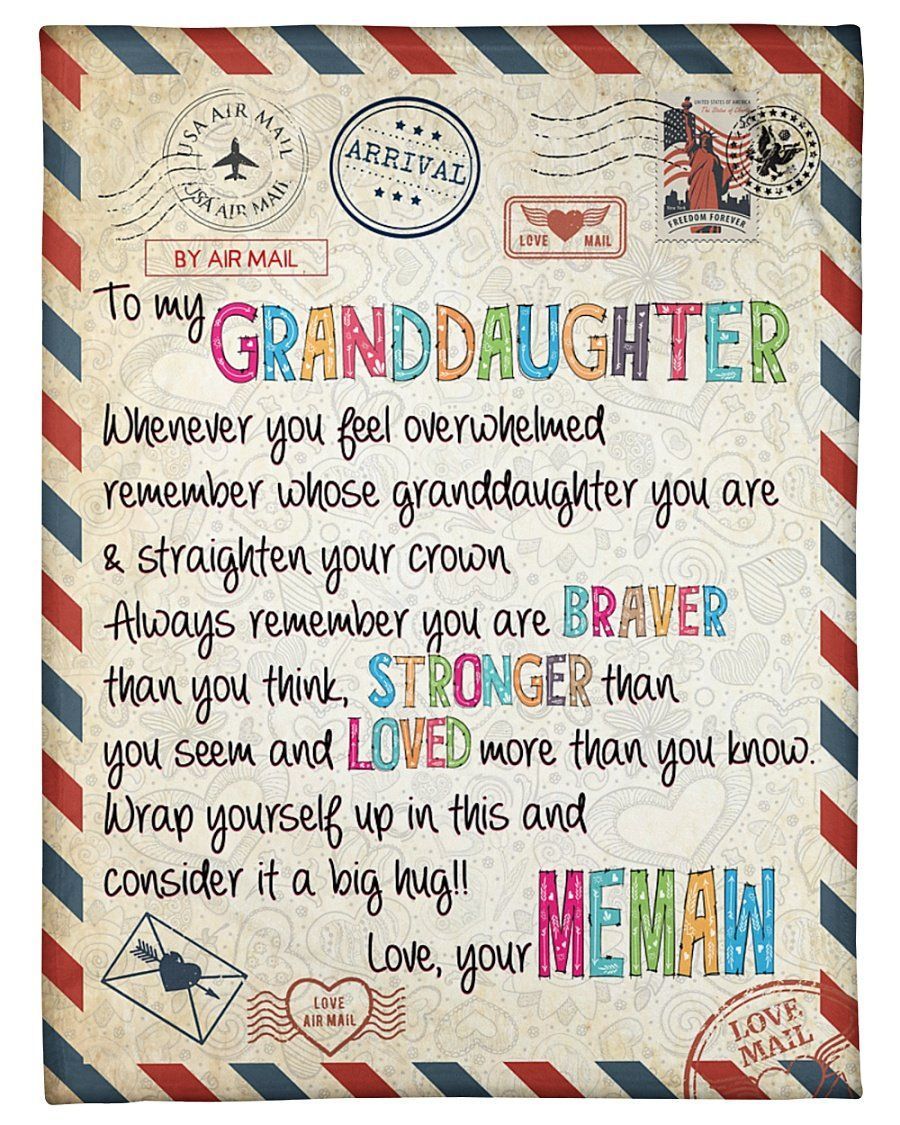 USA AIR MAIL
USA AIR MAIL
ARRIVAL
UNITED STATES OF AMERICA
The Statue of Liberty
New York
FREEDOM FOREVER
LOVE MAIL
BY AIR MAIL
To my GRANDDAUGHTER
Whenever you feel overwhelmed
remember whose granddaughter you are
& straighten your crown
Always remember you are BRAVER
than you think, STRONGER than
you seem and LOVED more than you know.
Wrap yourself up in this and
consider it a big hug!!
Love, your MEMAW
LOVE
AIR MAIL
LOVE
MAIL